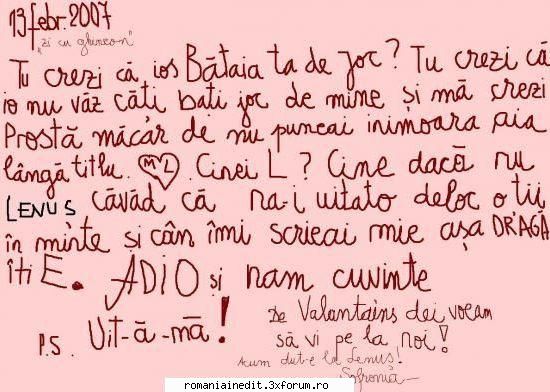 13 febr. 2007
"zi cu ghineon"
Tu crezi că ios Bătaia ta de Joc? Tu crezi că
io nu văz căti bati joc de mine și mă crezi
Prostă măcar de nu puneai inimoara aia
lângă titlu. M L . Cinei L? Cine dacă nu
LENUS căvăd că na-i uitato deloc o tii
în minte și cân îmi scrieai mie așa DRAGĂ
îti E. ADIO și nam cuvinte
P.S. Uit-ă-mă! De Valantains dei voeam
să vi pe la noi!
Acum dut-e la Lenuș!
Sofronia
romaniainedit.3xforum.ro